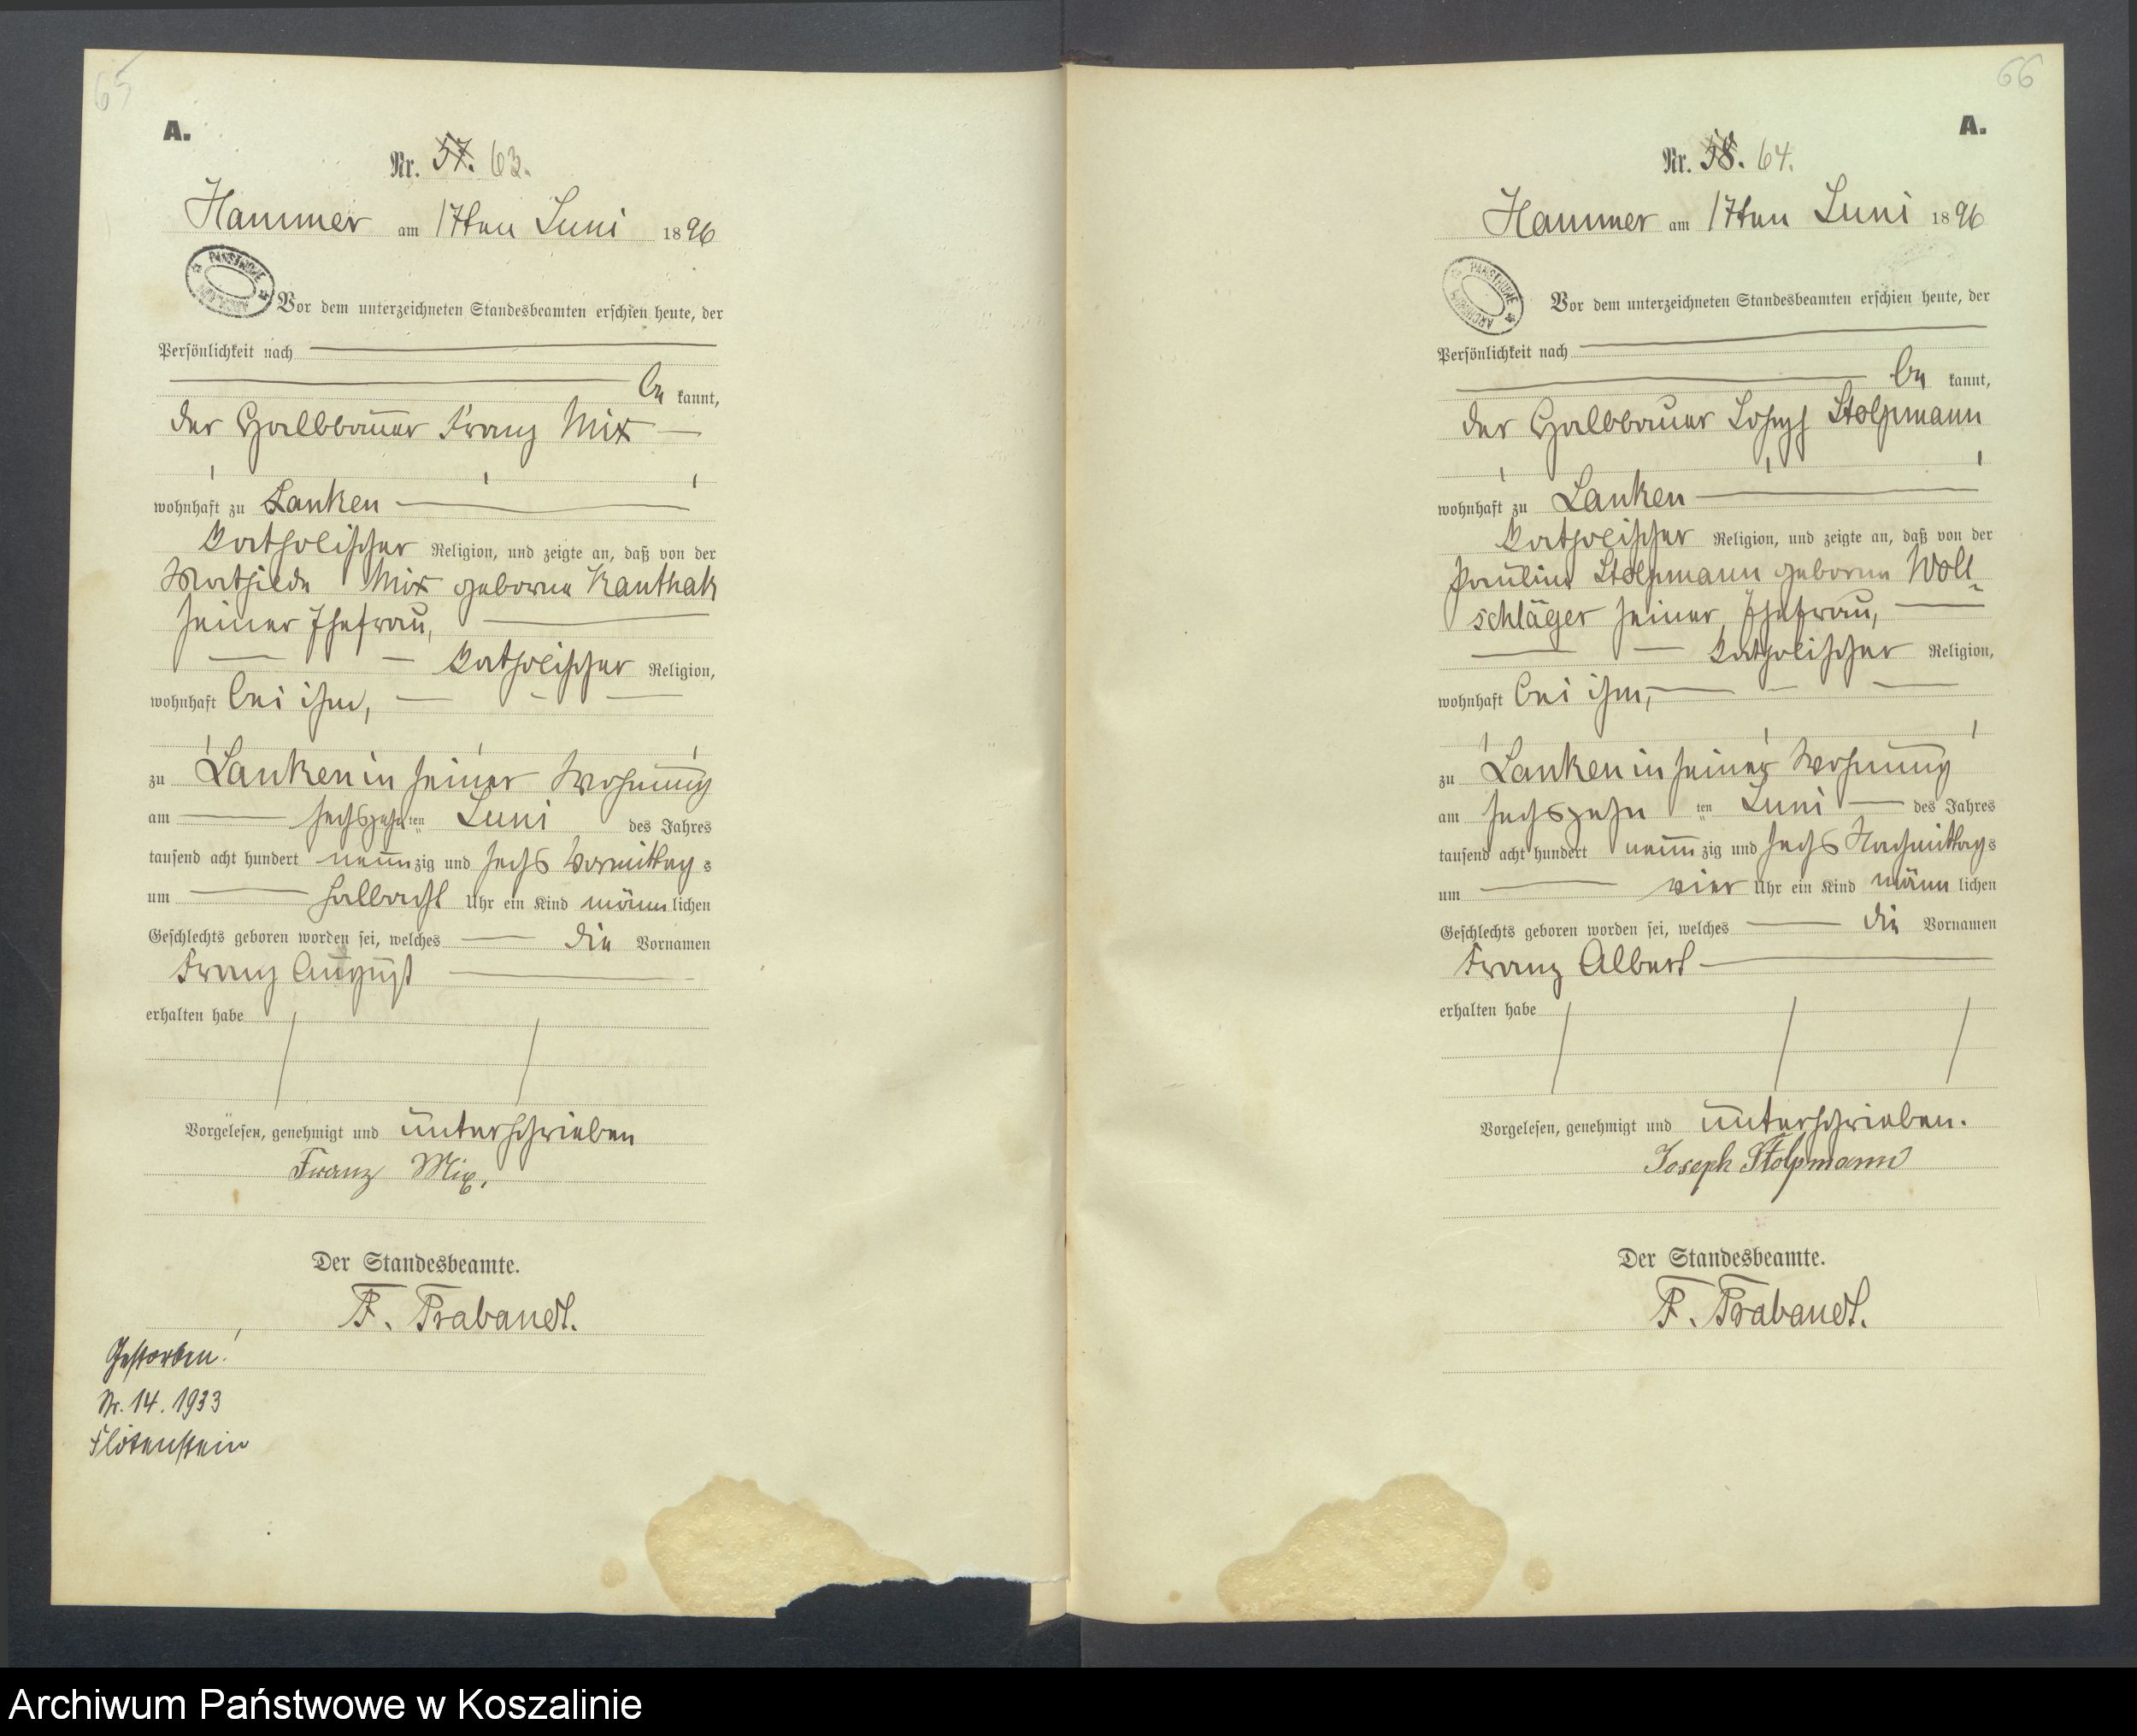 65
A.
Nr. 57. 63.
Hammer am 17ten Juni 1896
PAŃSTWOWE ARCHIWUM
Vor dem unterzeichneten Standesbeamten erschien heute, der
Persönlichkeit nach
be kannt,
der Halbbauer Franz Mix
wohnhaft zu Lanken
katholischer Religion, und zeigte an, daß von der
Mathilde Mix geborne Kanthak
seiner Ehefrau,
katholischer Religion,
wohnhaft bei ihm,
zu Lanken in seiner Wohnung
am sechszehn ten Juni des Jahres
tausend acht hundert neun zig und sechs Vormittag s
um halbacht Uhr ein Kind männ lichen
Geschlechts geboren worden sei, welches die Vornamen
Franz August
erhalten habe
Vorgelesen, genehmigt und unterschrieben
Franz Mix.
Der Standesbeamte.
F. Trabandt.
Gestorben!
Nr. 14. 1933
Flötenstein
66
A.
Nr. 58. 64.
Hammer am 17ten Juni 1896
PAŃSTWOWE ARCHIWUM
Vor dem unterzeichneten Standesbeamten erschien heute, der
Persönlichkeit nach
be kannt,
der Halbbauer Joseph Stolpmann
wohnhaft zu Lanken
katholischer Religion, und zeigte an, daß von der
Pauline Stolpmann geborne Woll-
schläger seiner Ehefrau,
katholischer Religion,
wohnhaft bei ihm,
zu Lanken in seiner Wohnung
am sechszehn ten Juni des Jahres
tausend acht hundert neun zig und sechs Nachmittag s
um vier Uhr ein Kind männ lichen
Geschlechts geboren worden sei, welches die Vornamen
Franz Albert
erhalten habe
Vorgelesen, genehmigt und unterschrieben.
Joseph Stolpmann
Der Standesbeamte.
F. Trabandt.
Archiwum Państwowe w Koszalinie